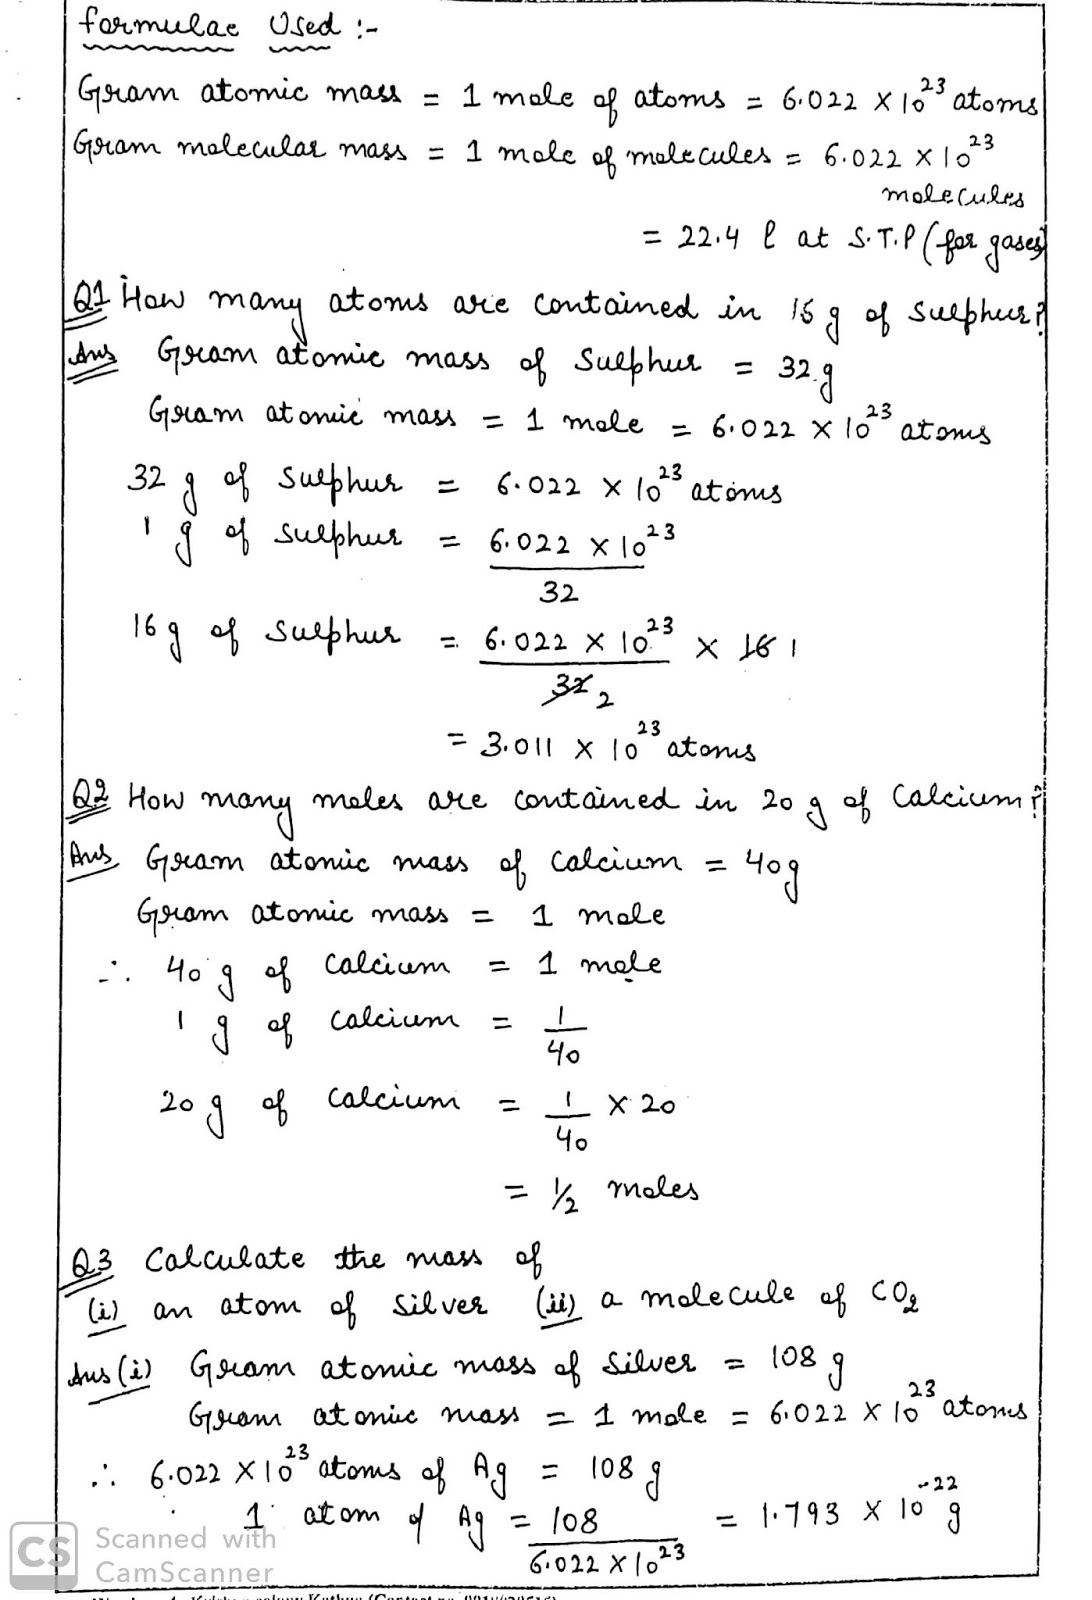 Formulae Used :-
Gram atomic mass = 1 mole of atoms = 6.022 × 10²³ atoms
Gram molecular mass = 1 mole of molecules = 6.022 × 10²³
molecules
= 22.4 l at S.T.P (for gases)
Q1 How many atoms are contained in 16 g of Sulphur?
Ans Gram atomic mass of Sulphur = 32 g
Gram atomic mass = 1 mole = 6.022 × 10²³ atoms
32 g of Sulphur = 6.022 × 10²³ atoms
1 g of Sulphur = 6.022 × 10²³
32
16 g of Sulphur = 6.022 × 10²³ × 16 1
32 2
= 3.011 × 10²³ atoms
Q2 How many moles are contained in 20 g of Calcium?
Ans Gram atomic mass of Calcium = 40g
Gram atomic mass = 1 mole
∴ 40 g of Calcium = 1 mole
1 g of Calcium = 1
40
20 g of Calcium = 1 × 20
40
= 1/2 moles
Q3 Calculate the mass of
(i) an atom of silver (ii) a molecule of CO₂
Ans (i) Gram atomic mass of Silver = 108 g
Gram atomic mass = 1 mole = 6.022 × 10²³ atoms
∴ 6.022 × 10²³ atoms of Ag = 108 g
1 atom of Ag = 108 = 1.793 × 10⁻²² g
6.022 × 10²³
CS Scanned with
CamScanner